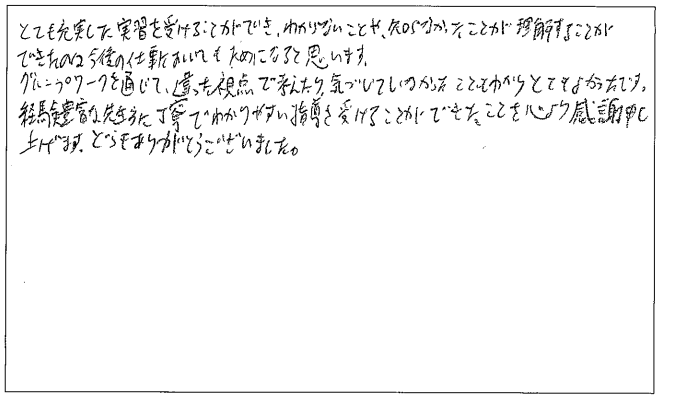 とても充実した実習を受けることができ、わからないことや、知らなかったことが理解することが
できたのは今後の仕事においてもためになると思います。
グループワークを通じて、違った視点で考えたり、気づいていなかったこともわかりとてもよかったです。
経験豊富な先生方に丁寧でわかりやすい指導を受けることができたことを心より感謝申し
上げます。どうもありがとうございました。